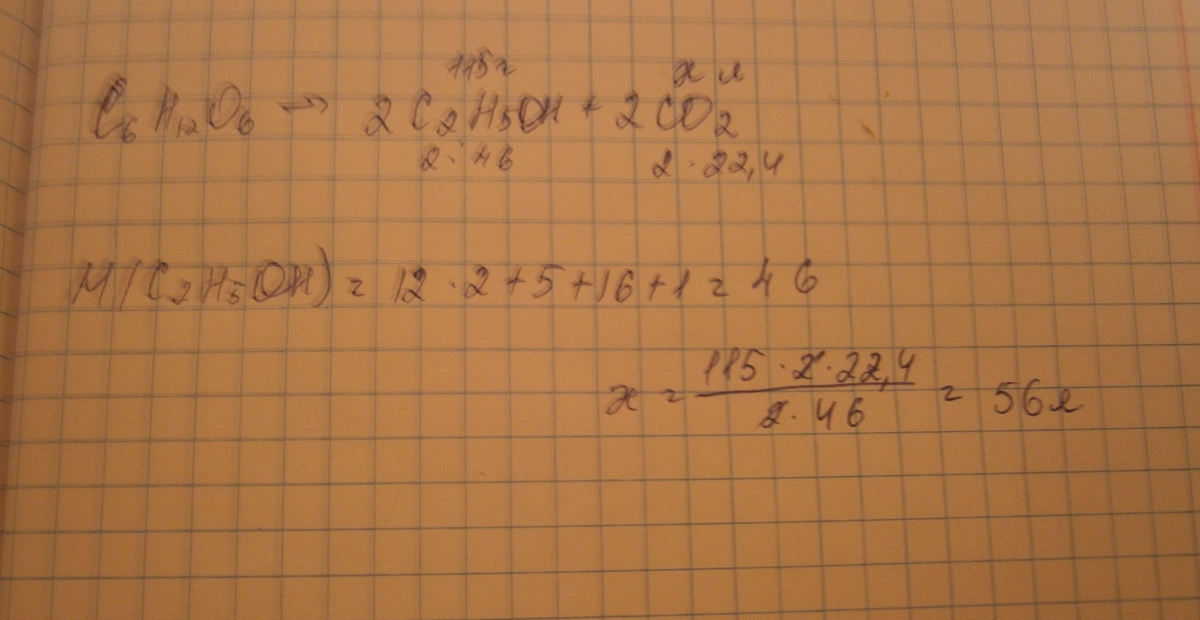 115г х л
C₆H₁₂O₆ → 2C₂H₅OH + 2CO₂
2·46 2·22,4
M(C₂H₅OH) = 12·2+5+16+1 = 46
115·2·22,4
х = = 56л
2·46